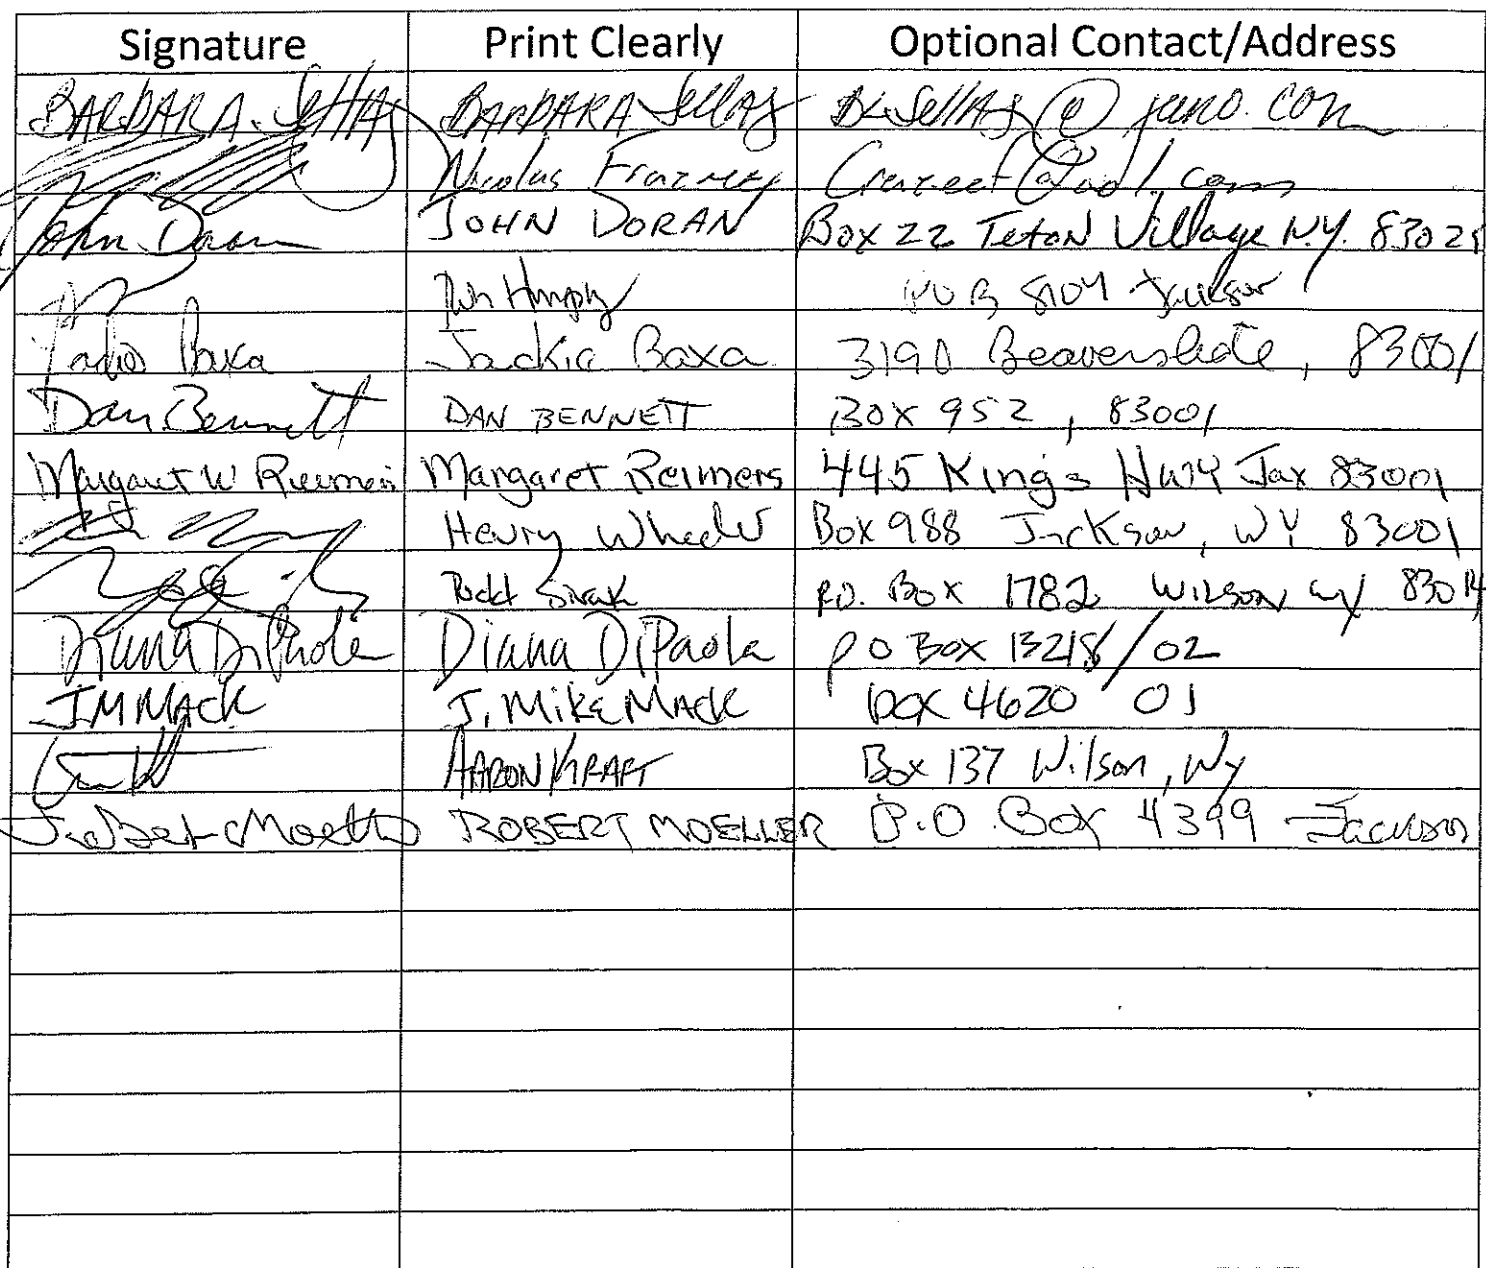 Signature Print Clearly Optional Contact/Address
BARBARA Sellas BARBARA Sellas @ juno.com
Nicolus
John Doran JOHN DORAN Box 22 Teton Village W.Y. 83025
POB Jackson
Baxa Jackie Baxa 3190 83001
Dan Bennett DAN BENNETT BOX 952, 83001
Margaret W Reimers Margaret Reimers 445 Kings Hwy Jax 83001
Henry Wheeler Box 988 Jackson, WY 83001
Todd P.O. Box 1782 Wilson WY 83014
Diana DiPaola Diana DiPaola PO Box 13218/02
JM Mack J. Mike Mack Box 4620 01
AARON KRAFT Box 137 Wilson, Wy
Robert Moeller ROBERT MOELLER P.O. Box 4399 Jackson